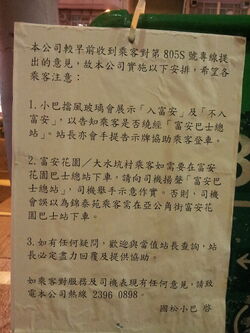 本公司較早前收到乘客對第 805S 號專線提
出的意見，故本公司實施以下安排，希望各
乘客注意：
1. 小巴擋風玻璃會展示「入富安」及「不入
富安」，以告知乘客是否繞經「富安巴士總
站」。站長亦會手提告示牌協助乘客登車。
2. 富安花園／大水坑村乘客如需要在富安花
園巴士總站下車，請向司機揚聲「富安巴士
總站」，司機舉手示意作實。否則，司機
會誤以為錦泰苑乘客需在亞公角街富安花
園巴士站下車。
3. 如有任何疑問，歡迎與當值站長查詢，站
長必定盡力回覆及提供協助。
如乘客對服務及司機表現有任何意見，請致
電本公司熱線 2396 0898。
國松小巴 啓